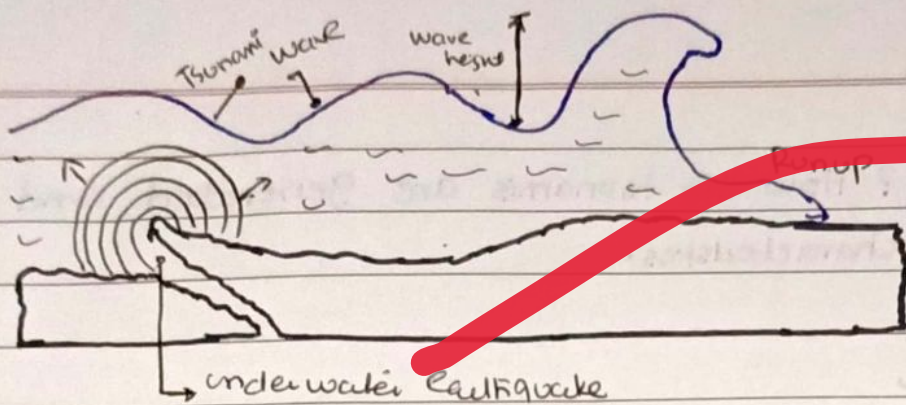 Tsunami wave
wave
height
Runup
underwater Earthquake